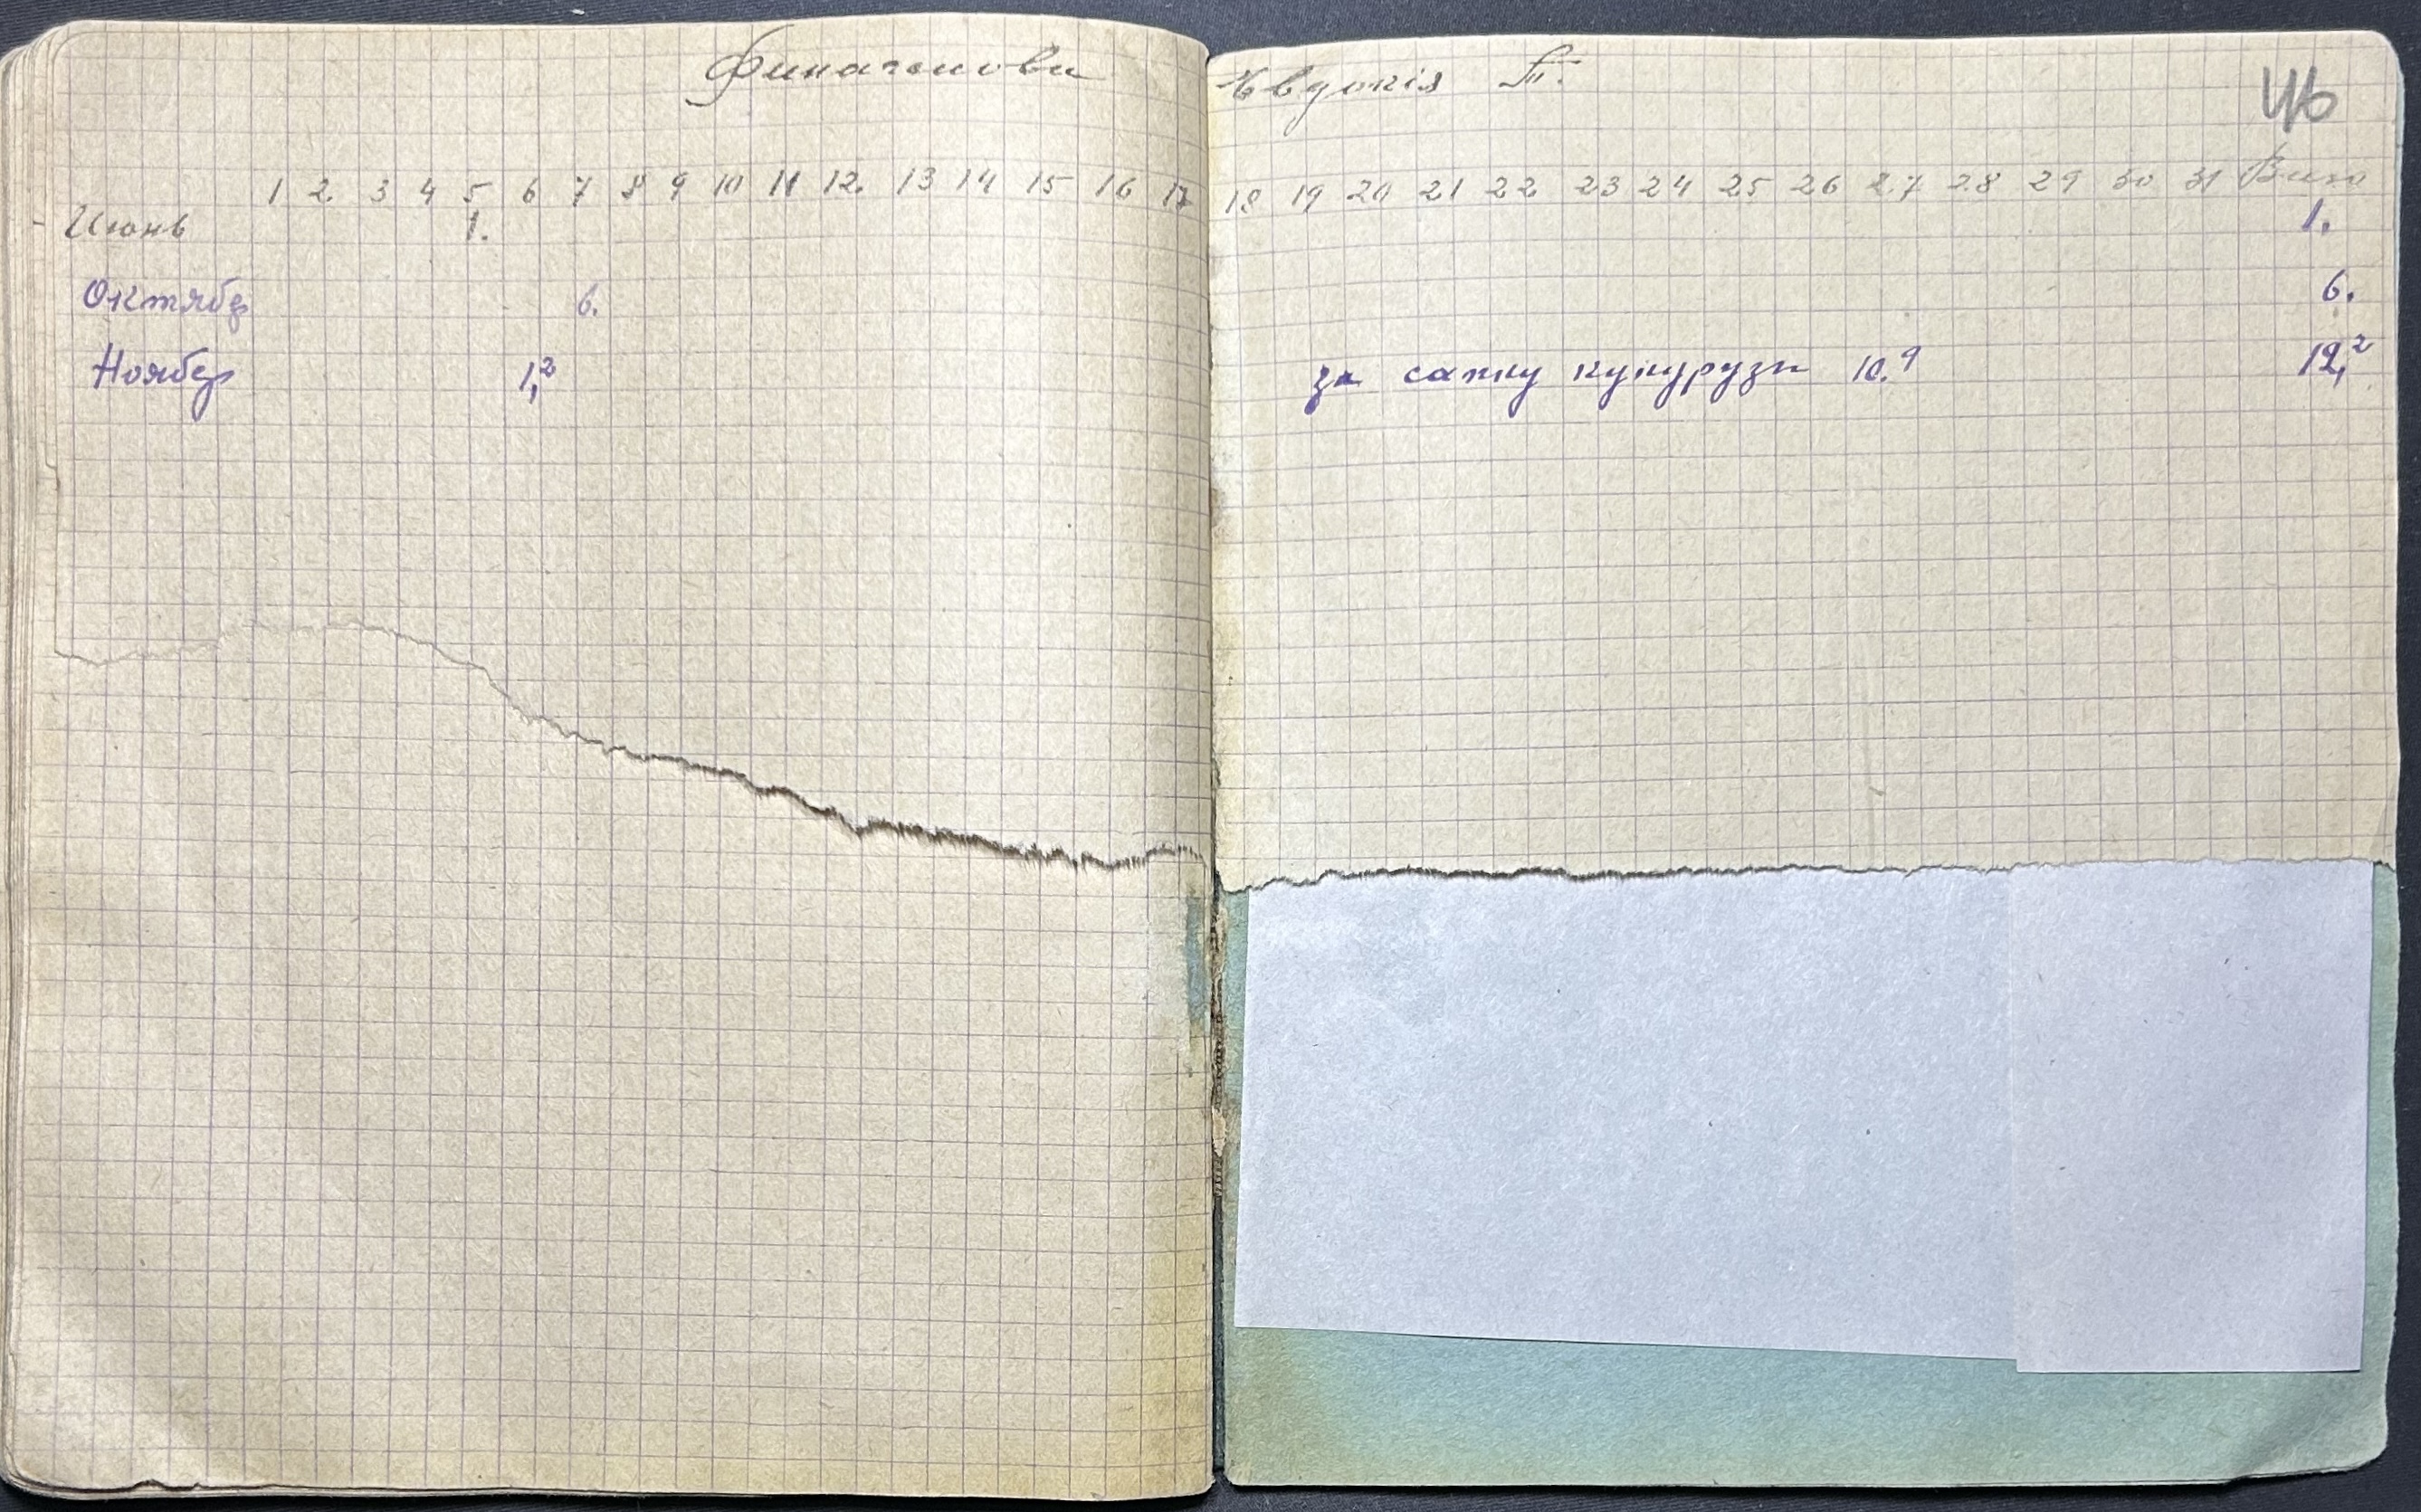 Евдокія П.
46
1 2 3 4 5 6 7 8 9 10 11 12. 13 14 15 16 17 18 19 20 21 22 23 24 25 26 27 28 29 30 31
Июнь 1. 1.
Октябр 6. 6.
Ноябр 1,2 за сапку кукурузи 10.9 12,2